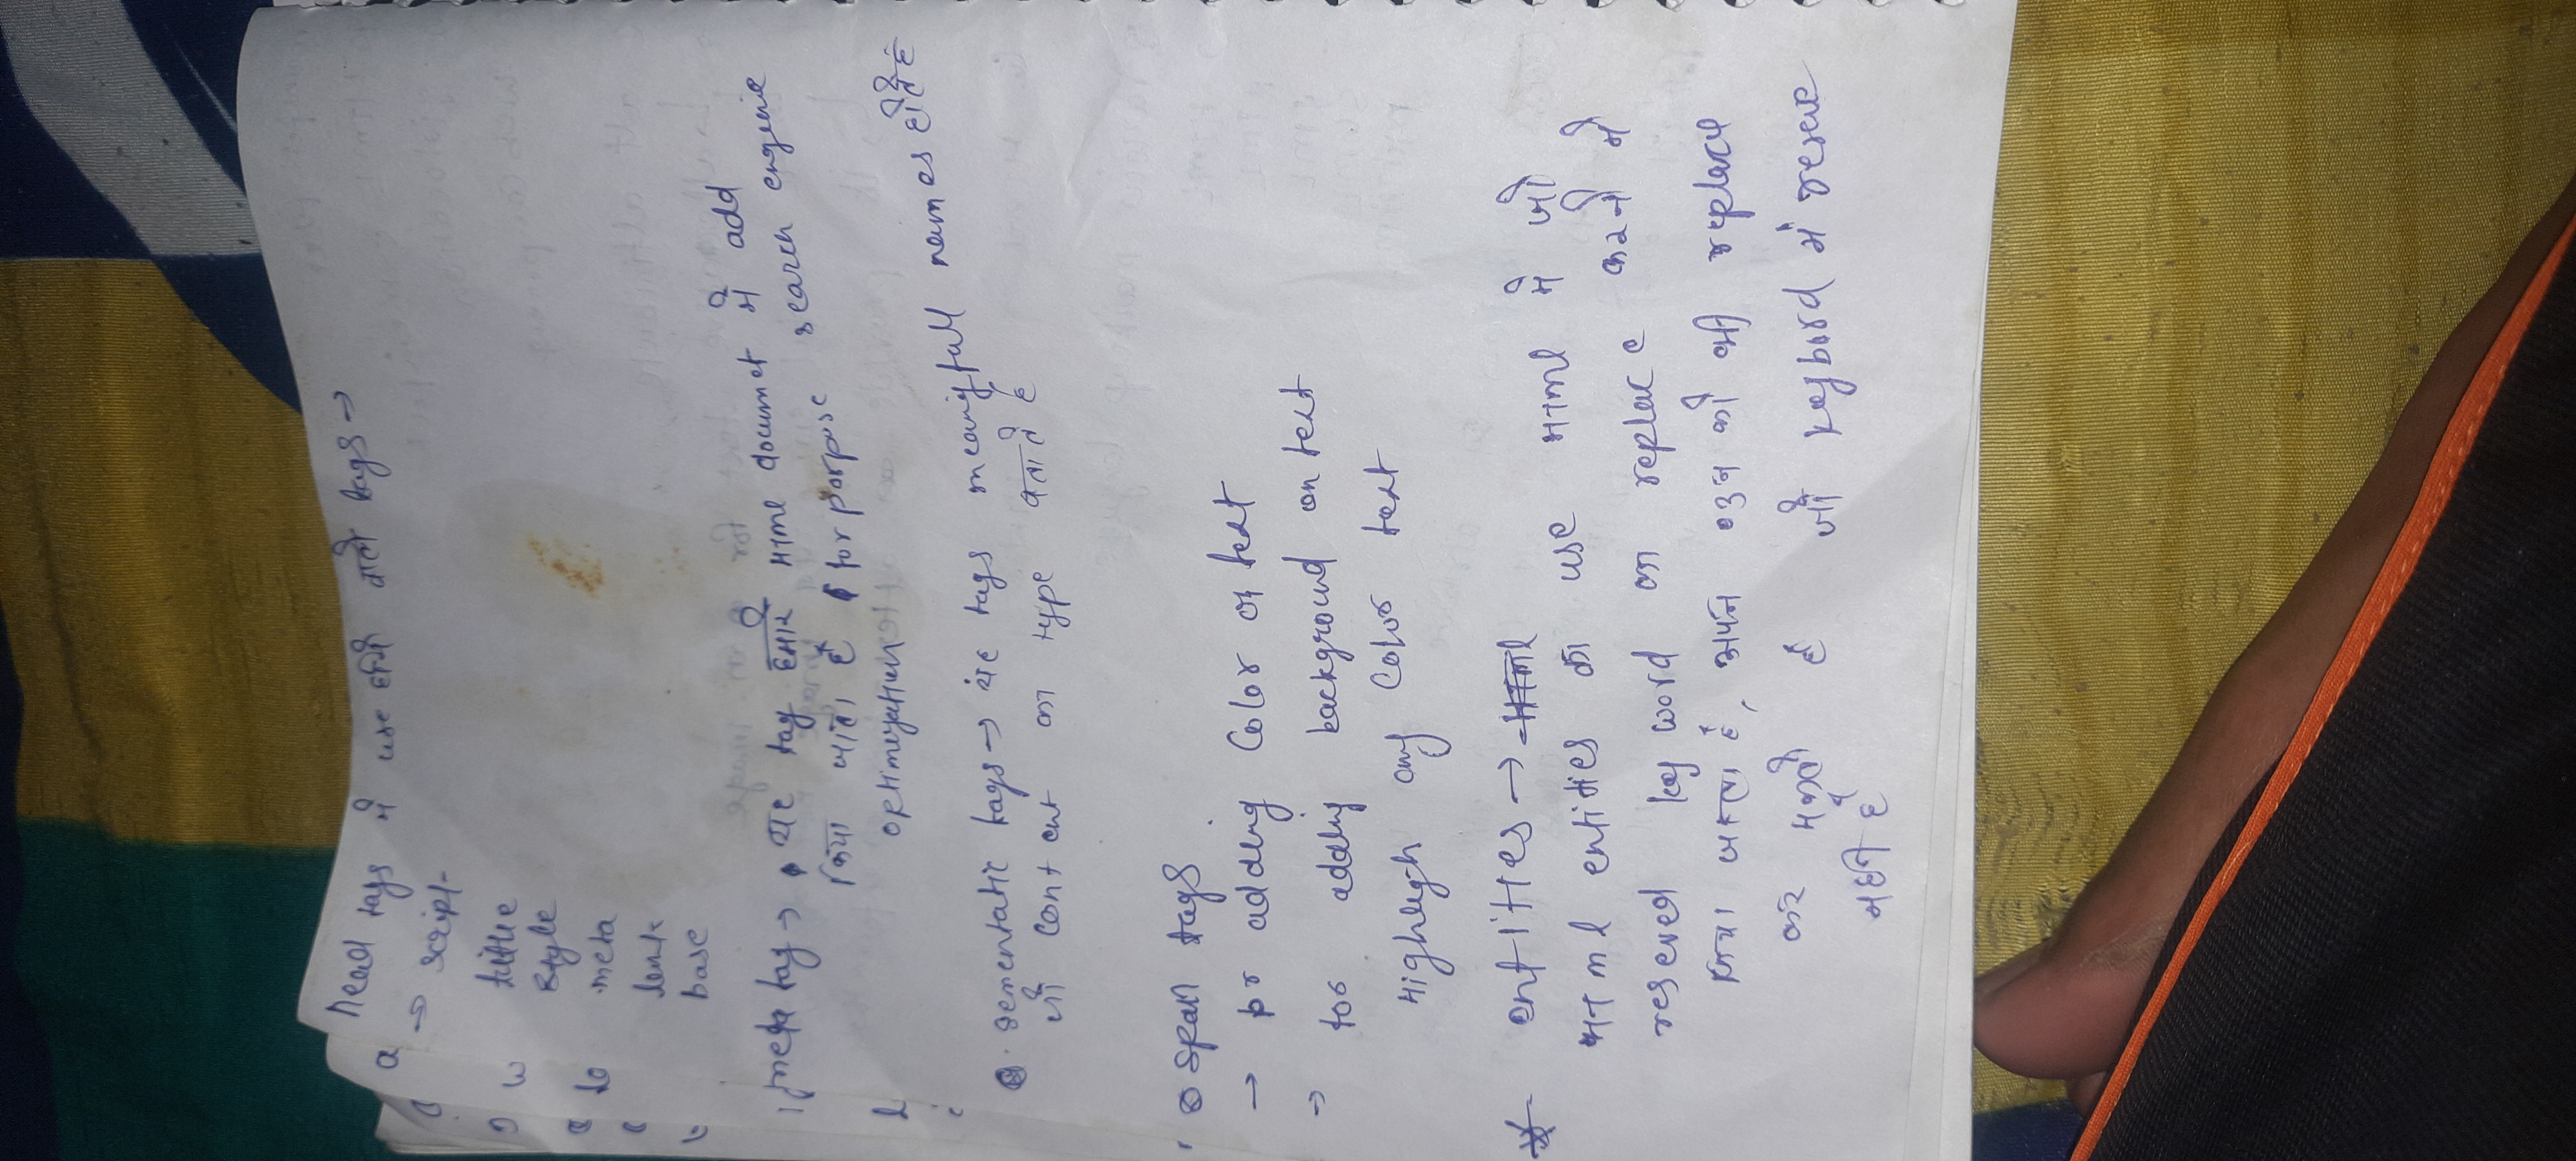 head tags मे use होने वाले tags →
→ script
tittle
style
meta
link
base
meta tag → यह tag हमारे HTML documet में add
किया जाता है for porpose search engenie
optimization
sementatic tags → यह tags meaningfull names होते है
जो content का type बताते है
span tags
→ for adding color on text
→ for adding background on text
Highligh any color text
entities →
HTML entities का use HTML मे जो
reseved key word का replace करने मे
किया जाता है, अपन उन को भी replace
कर सकते है जो keybord में reserve
नही है